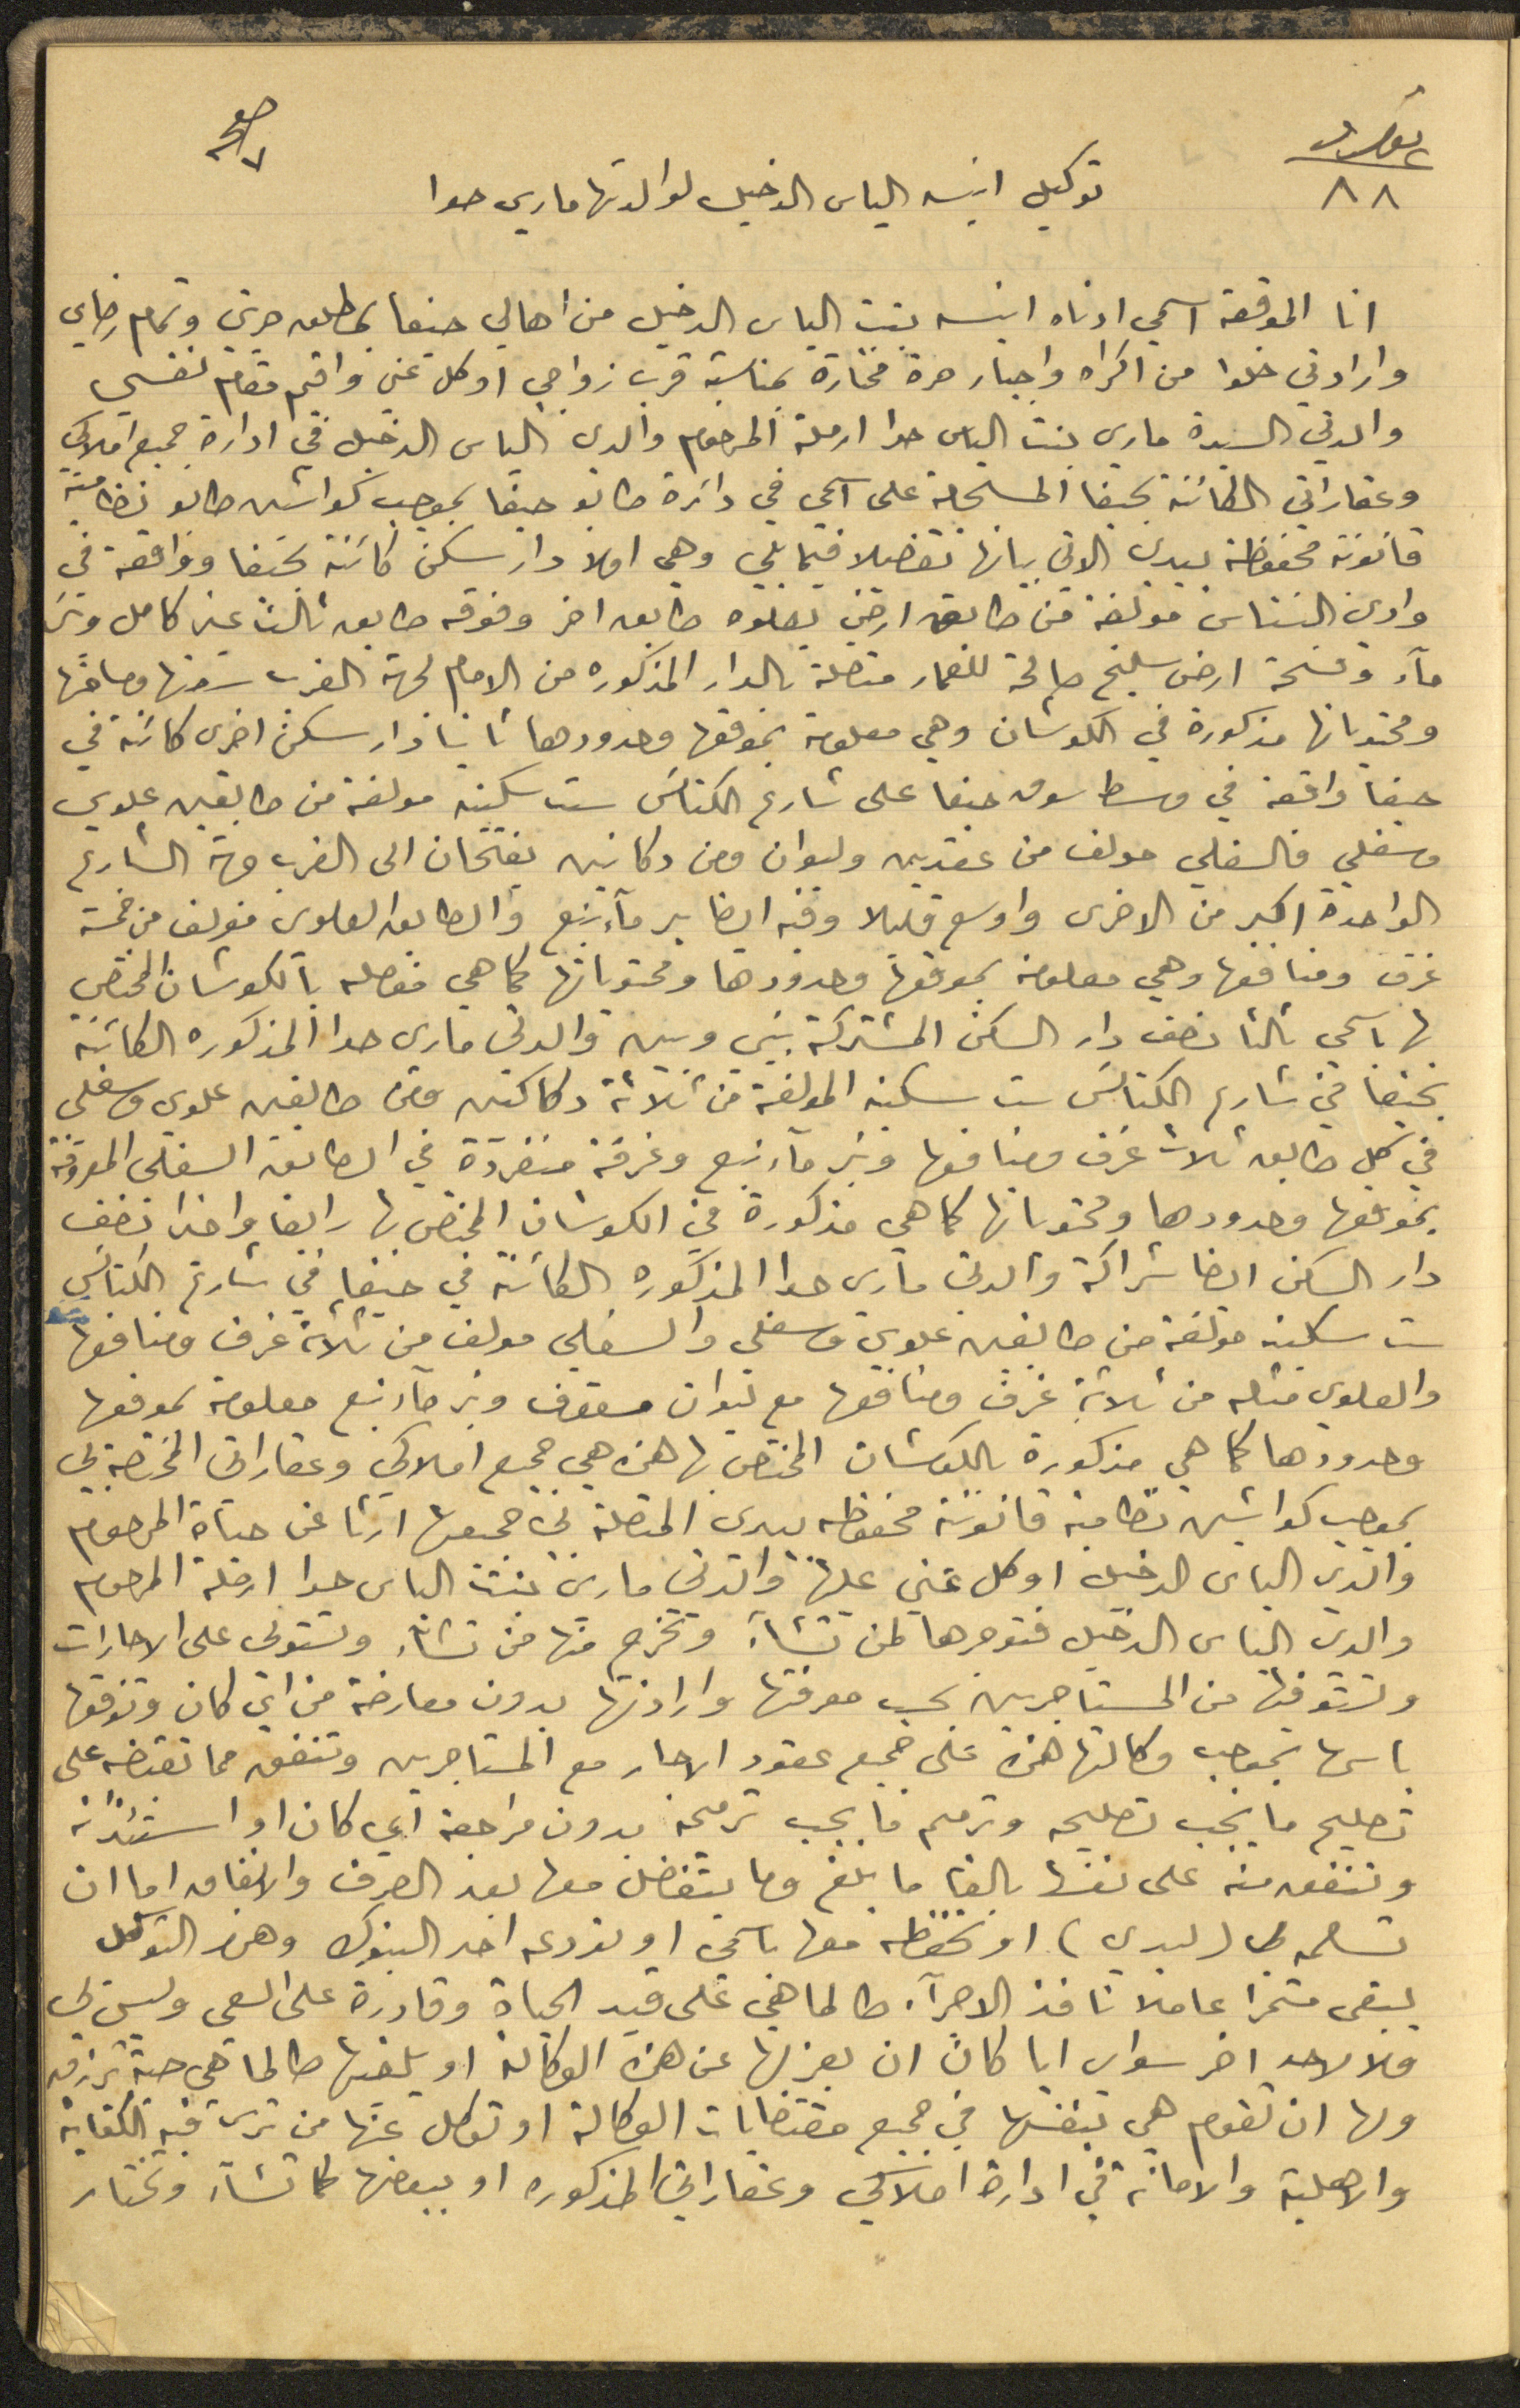 ٨٨
توكيل انيسه الياس الدخيل لوالدتها ماري حوا
انا الموقعة اسمي ادناه انيسه بنت الياس الدخيل من اهالي حيفا بمطلق حريتي وتمام رضاي
وارادتي خلوا من اكراه واجبار حرة مختارة بمناسبة قرب زواجي اوكل عني واقيم مقام نفسي
والدتي السيدة ماري بنت الياس حوا ارملة المرحوم والدي الياس الدخيل في ادارة جميع املاكي
وعقاراتي الكائنة بحيفا المسجلة على اسمي في دائرة طابو حيفا بموجب كواشين طابو نظامية
قانونية محفوظة بيدي الاتي بيانها تفصيلا فيما يلي وهي اولا دار سكن كائنة بحيفا وواقعة في
وادي النسناس مولفة من طابق ارضي يعلوه طابق اخر وفوقه طابق ثالث غير كامل وبئر
مآء وفسحة ارض سليخ صالحة للعمار متصلة بالدار المذكوره من الامام لجهة الغرب سعتها ومساحتها
ومحتوياتها مذكورة في الكوشان وهي معلومة بموقعها وحدودها ثانيا دار سكن اخرى كائنة في
حيفا واقعة في وسط سوق حيفا على شارع الكنائس ست سكينه مولفة من طابقين علوي
وسفلي فالسفلي مولف من عقدين وليوان ومن دكانين يفتحان الى الغرب جهة الشارع
الواحدة اكبر من الاخرى واوسع قليلا وفيه ايضا بير مآء نبع والطابق العلوي مولف من خمسة
غرف ومنافعها وهي معلومة بموقعها وحدودها ومحتوياتها كما هي مفصله بالكوشان المختص
بها باسمي ثالثا نصف دار السكن المشتركة بيني وبين والدتي ماري حوا المذكوره الكائنة
بحيفا في شارع الكنائس ست سكينه المولفة من ثلاثة دكاكين ومن طابقين علوي وسفلي
في كل طابق ثلاث غرف ومنافعها وبئر مآء نبع وغرفة منفردة في الطابق السفلي المعروفة
بموقعها وحدودها ومحتوياتها كما هي مذكورة في الكوشان المختص بها رابعا واخيرا نصف
دار السكن ايضا شراكة والدتي ماري حوا المذكوره الكائنة في حيفا في شارع الكنائس
ست سكينه مولفة من طابقين علوي وسفلي والسفلي مولف من ثلاثة غرف ومنافعها
والعلوي مثله من ثلاثة غرف ومنافعها مع ليوان مسقوف وبئر مآء نبع معلومة بموقعها
وحدودها كما هي مذكورة بالكوشان المختص بها هذه هي جميع املاكي وعقاراتي المختصة لي
بموجب كواشين نظامية قانونية محفوظه بيدي المتصلة لي جميعها ارثا عن حياة المرحوم
والدي الياس الدخيل اوكل عني عليها والدتي ماري بنت الياس حوا ارملة المرحوم
والدي الياس الدخيل فتوجرها لمن تشآء وتخرج منها من تشآء وتستولي على الاجارات
وتستوفيها من المستاجرين بحسب معرفتها وارادتها بدون معارضة من اي كان وتوقع
باسمها بموجب وكالتها هذه على جميع عقود الايجار مع المستاجرين وتنفق مما تقبضه على
تصليح ما يجب تصليحه وترميم ما يجب ترميمه بدون مراجعة اي كان او استئذانه
وتنفق منه على نفسها بالغا ما بلغ وما يتفضل معها بعد الصرف والانفاق اما ان
تسلمه لي (ليدي) او تحفظه معها باسمي او تودعه احد البنوك وهذا التوكيل
ليبقى مستمرا عاملا نافذ الاجرآء طالما هي على قيد الحياة وقادرة على السعي وليس لي
ولا لاحد اخر سواي ايا كان ان يعزلها عن هذه الوكالة او يلغيها طالما هي حية ترزق
ولها ان تقوم هي بنفسها في جميع مقتضيات الوكالة او توكل عنها من ترى فيه الكفاية
والاهلية والامانة في ادارة املاكي وعقاراتي المذكوره او بيعها كما تشآء وتختار